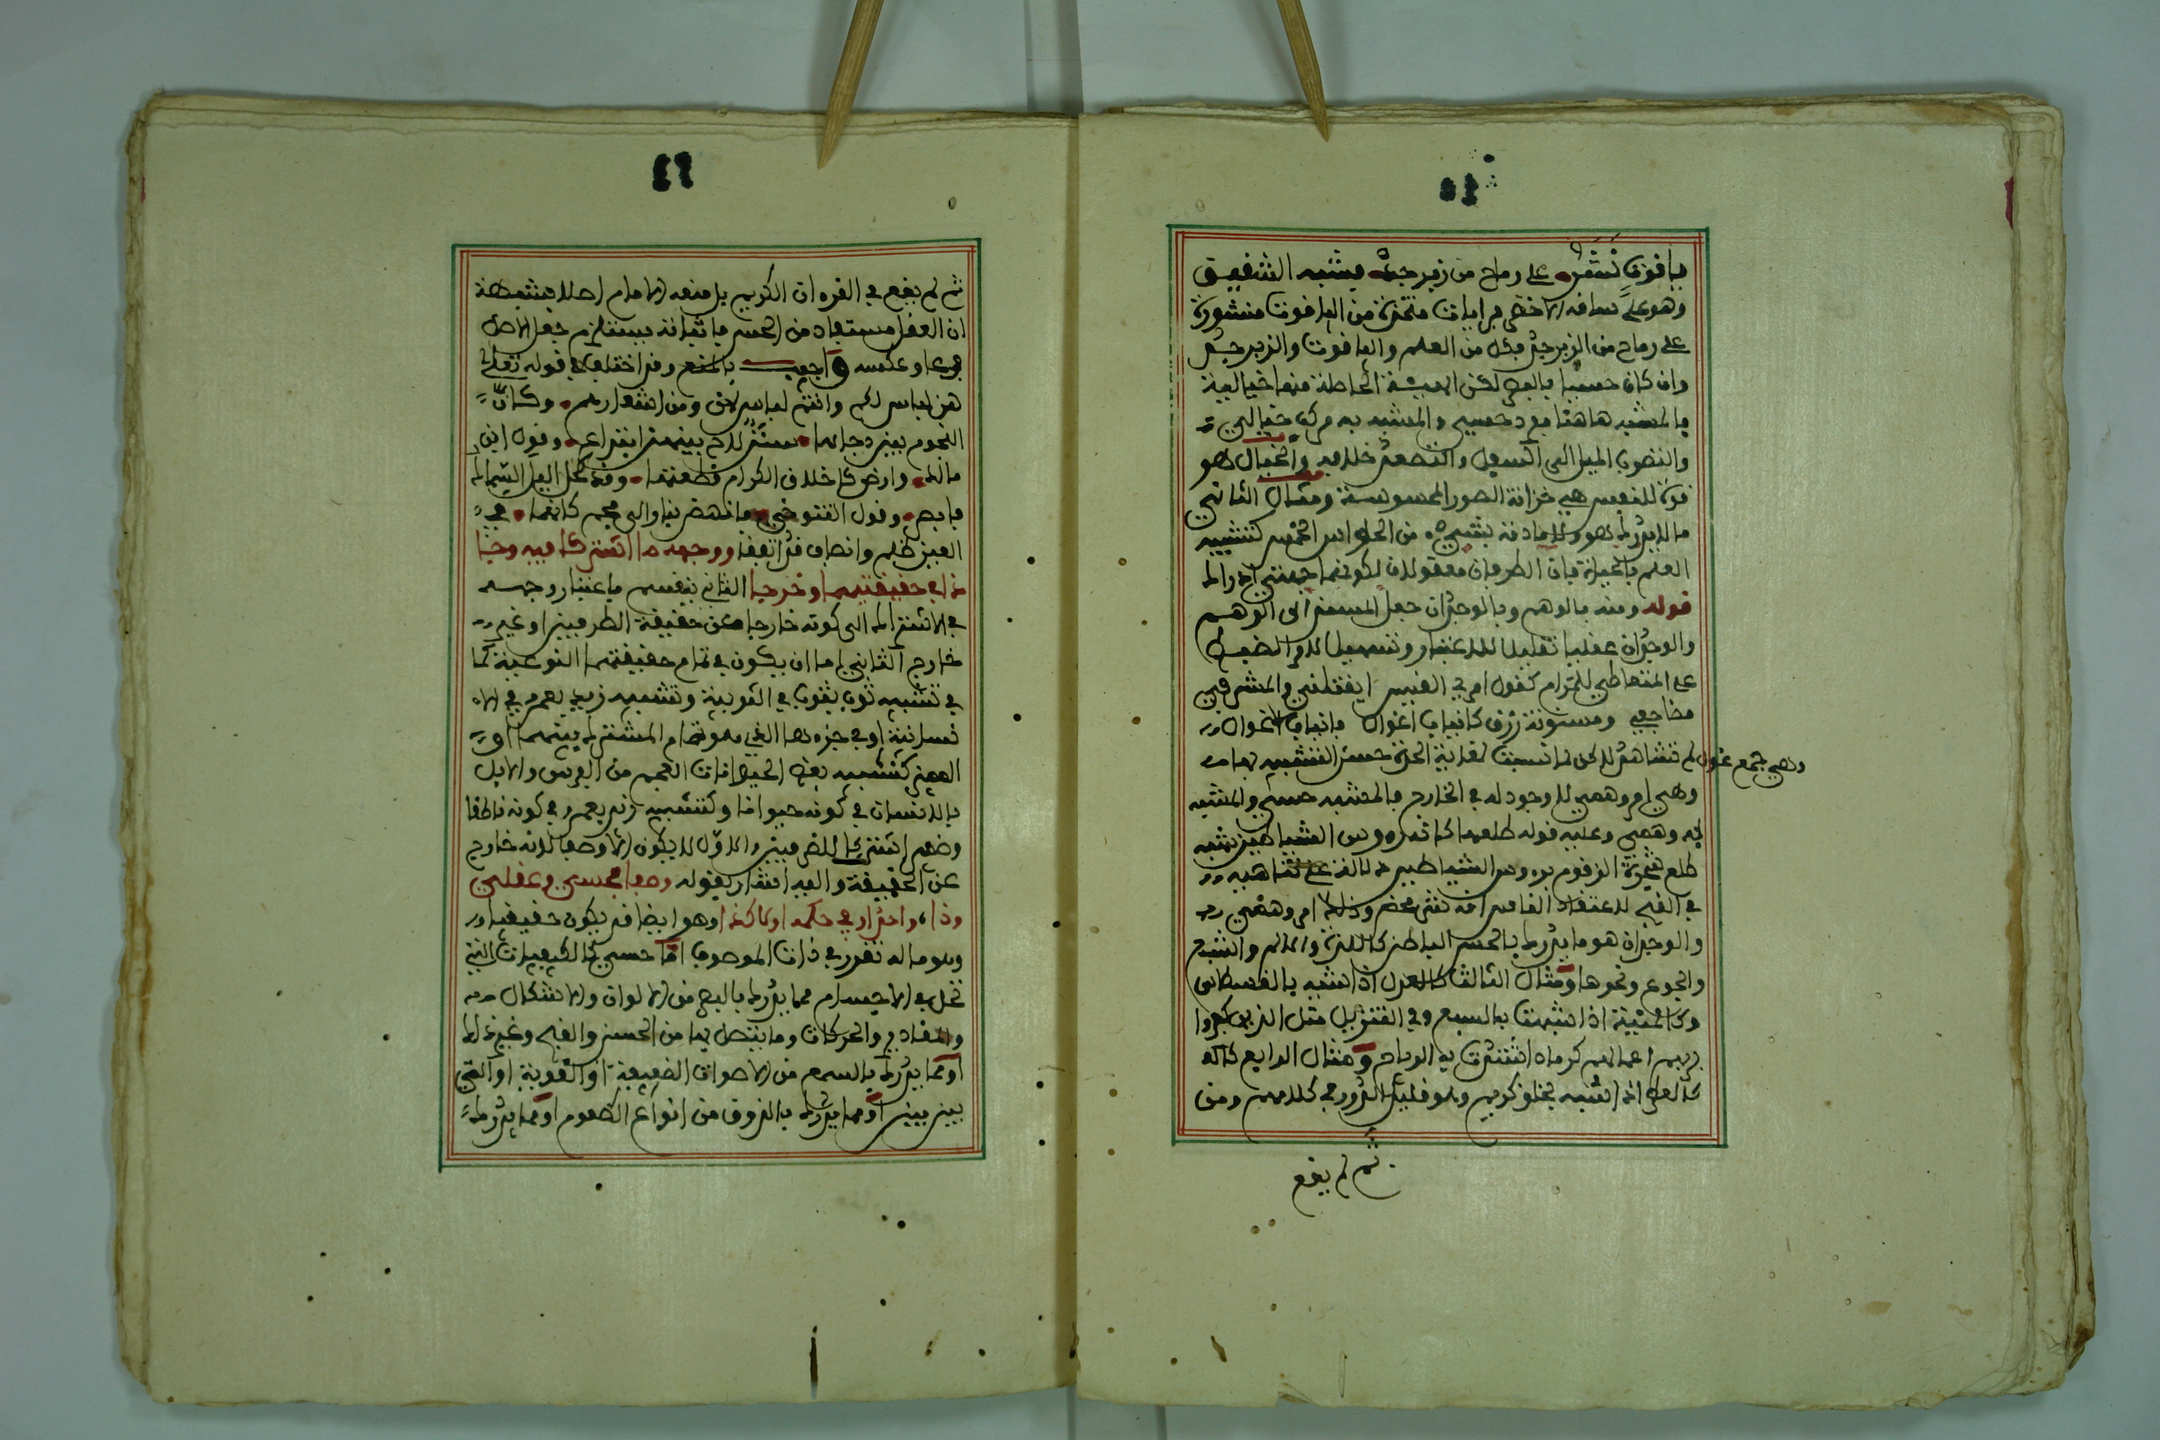 ياقوت نشرن على رماح من زبرجد فشبه الشقيق
وهو على ساقه الاخضر برايات متخذة من الياقوت منشورة
على رماح من الزبرجد فكل من العلم والياقوت والزبرجد
وان كان حسيا بالفعل لكن الهيئة الحاصلة منها خيالية
فالمشبه هاهنا مفرد حسي والمشبه به مركب خيالي
والتصوب الميل الى السفل والتصعد خلافه والخيال هو
قوة للنفس هي خزانة الصور المحسوسة ومثال الثاني
ما لا يدرك هو ولا مادته بشيء من الحواس الخمس كتشبيه
العلم بالحياة فان الطرفان معقولان لكونهما جهتي ادراك
قوله ومنه بالوهم وبالوجدان جعل المستند الى الوهم
والوجدان عقليا تقليلا للاعتبار وتسهيلا للضبط
على المتعاطي للمرام كقول امرئ القيس ايقتلني والمشرفي
مضاجعي ومسنونة زرق كانياب اغوال فانياب الاغوال
لم تشاهد لكن لما نسبت لغاية الحدة حسن التشبيه بها
وهي جمع غول
وهي امر وهمي لا وجود له في الخارج فالمشبه حسي والمشبه
به وهمي وعليه قوله طلعها كانه رءوس الشياطين شبه
طلع شجرة الزقوم برءوس الشياطين دلالة على تناهيه
في القبح لاعتقاد الناس انه شر محض وذلك امر وهمي
والوجدان هو ما يدرك بالحس الباطن كاللذة والالم والشبع
والجوع ونحوها ومثال الثالث كالعدل اذا شبه بالقسطاس
وكالمنية اذا شبهت بالسبع وفي التنزيل مثل الذين كفروا
بربهم اعمالهم كرماد اشتدت به الرياح ومثال الرابع
كالعطر اذا شبه بخلق كريم وهو قليل الدور في كلامهم ومن
ثم لم يقع
ثم لم يقع في القرءان الكريم بل منعه الامام اصلا بشبهة
ان العقل مستفاد من الحس فاثباته يستلزم جعل الاصل
فرعا وعكسه واجيب بالمنع وقد اختلف في قوله تعلى
هن لباس لكم وانتم لباس لهن ومن اشعارهم وكان
النجوم بين دجاها سنن لاح بينهن ابتداع وقول ابن
مالك وارض كاخلاق الكرام قطعتها وقد كحل الليل السماك
فابصر وقول التنوخي فانهض بنار الى فحم كانهما في
العين ظلم وانصاف قد اتفقا ووجهه ما اشتركا فيه وجا
ذا في حقيقتيهما وخارجا الثاني ينقسم باعتبار وجهه
في الاشتراك الى كونه خارجا عن حقيقة الطرفين او غير
خارج الثاني اما ان يكون في تمام حقيقتهما النوعية كما
في تشبيه ثوب بثوب في الثوبية وتشبيه زيد بعمرو في الا
نسانية او في جزءها الذي هو تمام المشترك بينهما او
المميز كتشبيه بعض الحيوانات العجم من الفرس والابل
بالانسان في كونه حيوانا وكتشبيه زيد بعمرو في كونه ناطقا
وضمير اشتركا للطرفين والاول لا يكون الا وصفا لانه خارج
عن الحقيقة واليه اشار بقوله وصفا فحسي وعقلي
وذا واحدا او في حكمه او لا كذا وهو ايضا قد يكون حقيقيا
وهو ما له تقرر في ذات الموصوف اما حسي كالكيفيات التي
تحل في الاجسام مما يدرك بالبصر من الالوان والاشكال
والمقادير والحركات وما يتصل بها من الحسن والقبح وغير ذلك
او مما يدرك بالسمع من الاصوات الضعيفة او القوية او التي
بين بين او مما يدرك بالذوق من انواع الطعوم او مما يدرك